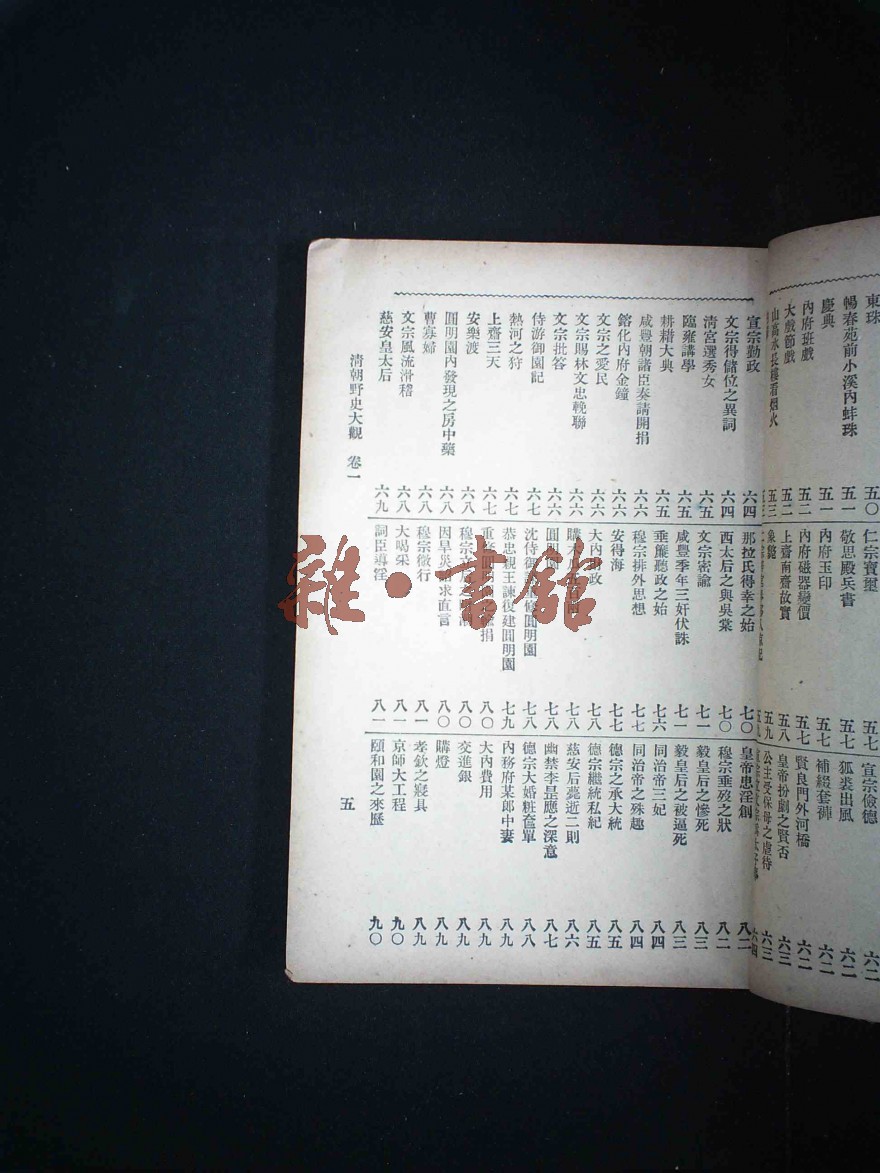 東珠 五〇
暢春苑前小溪內蚌珠 五一
慶典 五一
內府班戲 五二
大戲節戲 五二
山高水長樓看烟火 五三
仁宗寶璽 五七
敬思殿兵書 五七
內府玉印 五七
內府磁器變價 五七
上齋南齋故實 五八
象 五九
宣宗儉德 六二
狐裘出風 六二
補綴套褲 六二
賢良門外河橋 六二
皇帝扮劇之賢否 六三
公主受保母之虐待 六三
六四
宣宗勤政 六四
文宗得儲位之異詞 六四
清宮選秀女 六五
臨雍講學 六五
耕耤大典 六五
咸豐朝諸臣奏請開捐 六六
鎔化內府金鐘 六六
文宗之愛民 六六
文宗賜林文忠輓聯 六六
文宗批答 六六
侍游御園記 六七
熱河之狩 六七
上齋三天 六七
安樂渡 六八
圓明園內發現之房中藥 六八
曹寡婦 六八
文宗風流滑稽 六八
慈安皇太后 六九
那拉氏得幸之始 七〇
西太后之與吳棠 七〇
文宗密諭 七一
咸豐季年三奸伏誅 七一
垂簾聽政之始 七六
穆宗排外思想 七七
安得海 七七
大內 政 七八
購木 七八
圓明園 七八
沈侍御 修圓明園 七八
恭忠親王諫復建圓明園 七九
重修圓明園 捐 八〇
穆宗 八〇
因旱災 求直言 八〇
穆宗微行 八一
大喝采 八一
詞臣導淫 八一
皇帝患淫創 八二
穆宗垂歿之狀 八二
毅皇后之慘死 八三
毅皇后之被逼死 八三
同治帝三妃 八四
同治帝之殊趣 八四
德宗之承大統 八五
德宗繼統私紀 八五
慈安后薨逝二則 八六
幽禁李是應之深意 八七
德宗大婚粧奩單 八八
內務府某郎中妻 八九
大內費用 八九
交進銀 八九
購燈 八九
孝欽之寢具 八九
京師大工程 九〇
頤和園之來歷 九〇
清朝野史大觀 卷一
五
雜·書館